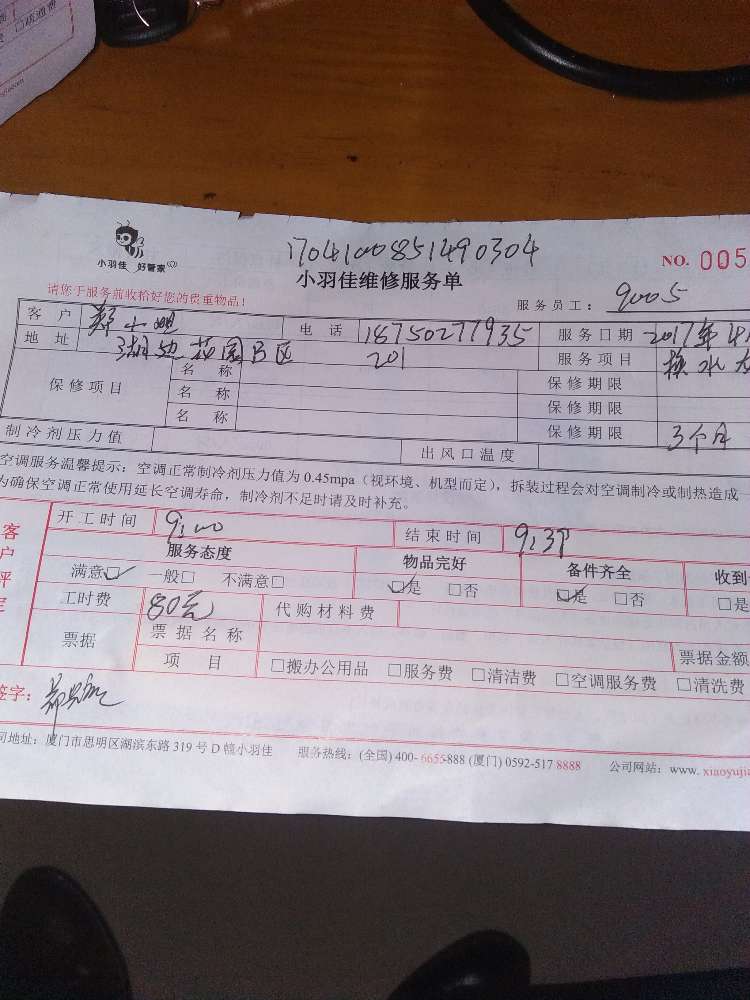 疏通费
17041008851490304
小羽佳 好管家
小羽佳维修服务单
NO. 005
请您于服务前收拾好您的贵重物品!
服务员工: 90005
客 户 郑小姐 电 话 18750277935 服务日期 2017年4
地 址 湖边花园B区 201 服务项目 换水
保修项目 名 称 保修期限
名 称 保修期限
名 称 保修期限 3个月
制冷剂压力值 出风口温度
空调服务温馨提示:空调正常制冷剂压力值为 0.45mpa(视环境、机型而定),拆装过程会对空调制冷或制热造成一
为确保空调正常使用延长空调寿命,制冷剂不足时请及时补充。
开工时间 9:00 结束时间 9:3
客户评定
服务态度 物品完好 备件齐全 收到
满意☑ 一般□ 不满意□ ☑是 □否 ☑是 □否 □是
工时费 80元 代购材料费
票据 票据名称 票据金额
项 目 □搬办公用品 □服务费 □清洁费 □空调服务费 □清洗费
签字:
司地址:厦门市思明区湖滨东路 319 号 D 幢小羽佳 服务热线:(全国) 400- 6655-888 (厦门) 0592-517 8888 公司网站:www. xiaoyujia